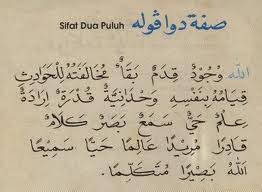 صفة دوا ڤوله
Sifat Dua Puluh
الله وُجُوْدْ قِدَمْ بَقَأْ مُخَالَفَتُهُ لِلْحَوَادِثِ
قِيَامُهُ بِنَفْسِهِ وَحْدَانِيَّةْ قُدْرَةْ إِرَادَةْ
عِلْمُ حَيّ سَمَعْ بَصَرْ كَلَامْ
قَادِرًا مُرِيْدًا عَالِمًا حَيًّا سَمِيْعًا
اللهُ بَصِيْرًا مُتَكَلِّمًا.